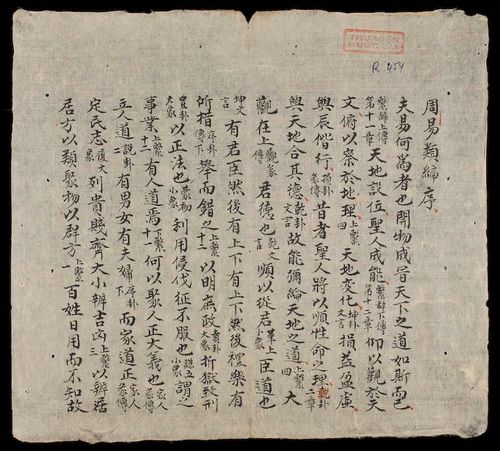 THƯ VIỆN
QUỐC GIA
R.454
周易類編序
夫易何爲者也開物成冒天下之道如斯而已
繫辭上傳第十一章天地設位聖人成能繫辭下傳第十二章仰以觀於天
文俯以察於地理上繫四天地變化坤卦文言損益盈虛
與辰偕行損卦彖傳昔者聖人將以順性命之理說卦二章
與天地合其德乾卦文言故能彌綸天地之道上繫四大
觀在上觀彖傳君德也乾文言順以從君革上小象臣道也
坤文言有君臣然後有上下有上下然後禮樂有
所措序卦傳下舉而錯之上繫十二以明庶政賁卦大象折獄致刑
豐卦大象以正法也蒙初小象利用侵伐征不服也謙五小象謂之
事業上繫十二有人道焉下繫十一何以聚人正大義也家人彖傳
立人道說卦二有男女有夫婦序卦下而家道正家人彖傳
定民志履大象列貴賤齊大小辨吉凶上繫三以辨
居方以類聚物以群上繫一百姓日用而不知故